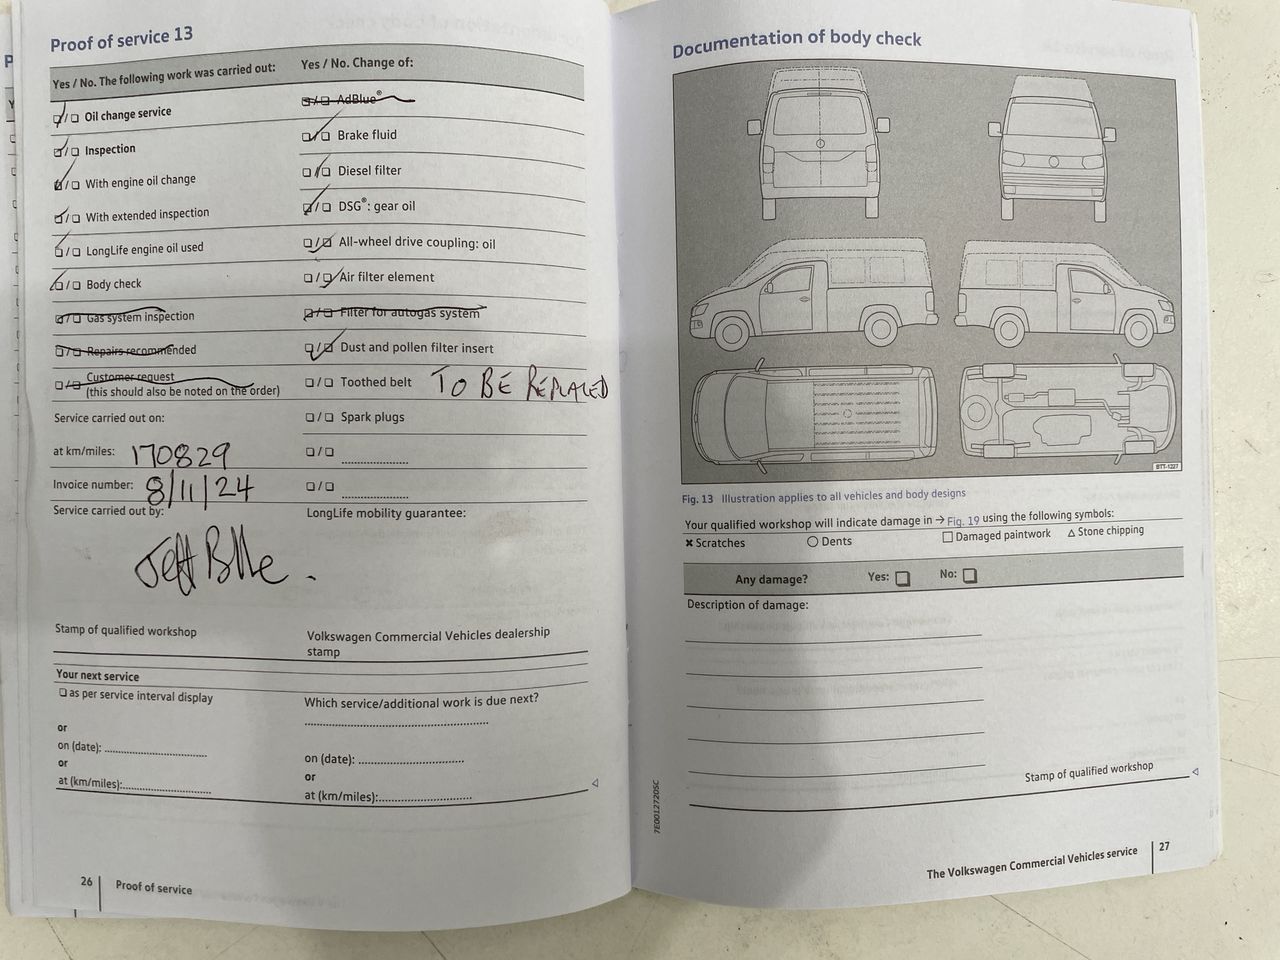 Proof of service 13
Yes / No. The following work was carried out:
Oil change service
Inspection
With engine oil change
With extended inspection
LongLife engine oil used
Body check
Gas system inspection
Repairs recommended
Customer request
(this should also be noted on the order)
Service carried out on:
at km/miles: 170829
Invoice number: 8/11/24
Service carried out by:
Stamp of qualified workshop
Yes / No. Change of:
AdBlue®
Brake fluid
Diesel filter
DSG®: gear oil
All-wheel drive coupling: oil
Air filter element
Filter for autogas system
Dust and pollen filter insert
Toothed belt TO BE REPLACED
Spark plugs
LongLife mobility guarantee:
Volkswagen Commercial Vehicles dealership
stamp
Your next service
as per service interval display
or
on (date):
or
at (km/miles):
Which service/additional work is due next?
on (date):
or
at (km/miles):
26 Proof of service
Documentation of body check
BTT-1227
Fig. 13 Illustration applies to all vehicles and body designs
Your qualified workshop will indicate damage in → Fig. 19 using the following symbols:
× Scratches ○ Dents □ Damaged paintwork △ Stone chipping
Any damage? Yes: □ No: □
Description of damage:
Stamp of qualified workshop
7E0012720SC
The Volkswagen Commercial Vehicles service 27